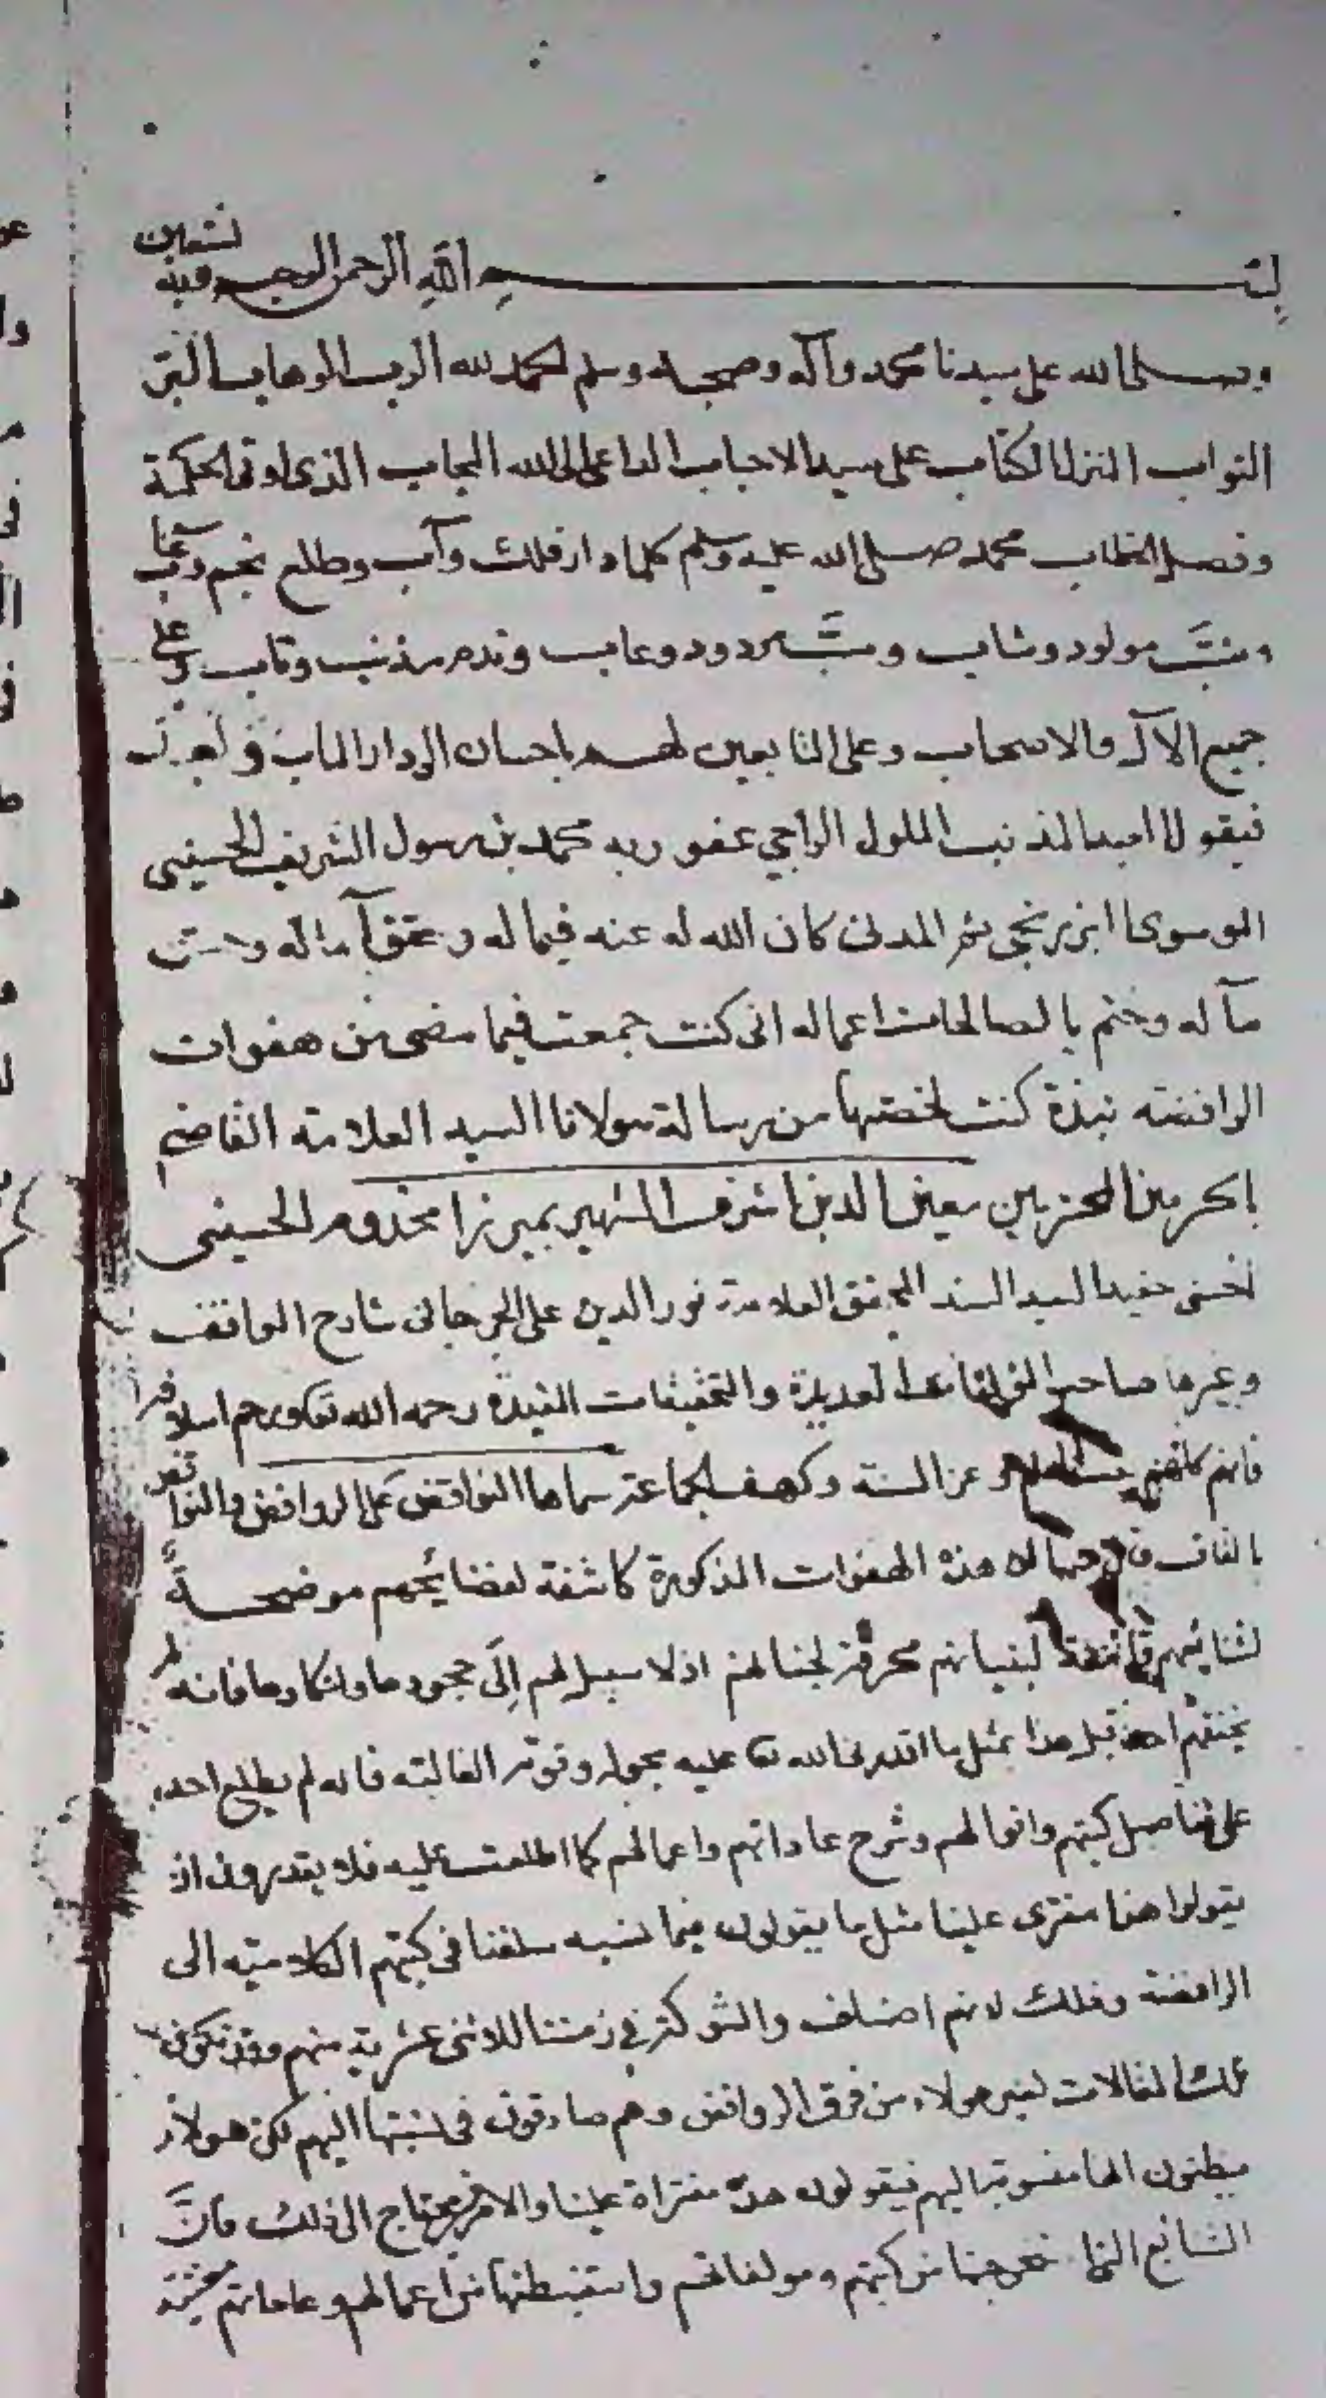 بسم الله الرحمن الرحيم وبه نستعين
وصلى الله على سيدنا محمد وآله وصحبه وسلم الحمد لله الرب الوهاب البر
التواب المنزل الكتاب على سيد الاحباب الداعي الى الله المجاب الذي اوتي الحكمة
وفصل الخطاب محمد صلى الله عليه وسلم كلما دار فلك وآب وطلع نجم وغاب
مولود وشاب ودود وعاب وندم مذنب وتاب وعلى
جميع الآل والاصحاب وعلى التابعين لهم باحسان الى دار المآب وبعد
فيقول العبد المذنب الملول الراجي عفو ربه محمد بن رسول الشريف الحسيني
الموسوي البرزنجي ثم المدني كان الله له عنه فيما له وحقق آماله وحسن
مآله وختم بالصالحات اعماله اني كنت جمعت فيما مضى من هفوات
الرافضه نبذة كنت لخصتها من رسالة مولانا السيد العلامة القاضي
بالحرمين المحترمين معين الدين اشرف الشهير بميرزا مخدوم الحسيني
الحسني حفيد السيد السند المحقق العلامة نور الدين على الجرجاني شارح المواقف
وغيرها صاحب المؤلفات العديدة والتحقيقات المفيدة رحمه الله تعالى ورحم اسلافه
فانهم كلهم عز السنة وكهف الجماعة سماها النواقض على الروافض والنواقض
بالقاف قال هذه الهفوات المذكورة كاشفة لفضائحهم موضحة
لشنائعهم لبنيانهم محرقة لجنانهم اذ لا سبيل لهم إلى جحودها وانكارها فانه لم
احد قبل هذا بمثل ما اقدرني الله تعالى عليه بحوله وقوته الغالبة فانه لم يطلع احد
على تفاصيل كتبهم واقوالهم وشرح عاداتهم واعمالهم كما اطلعت عليه فلا يقدرون ان
يقولوا هذا مفترى علينا مثل ما يقولون فيما نسبه سلفنا في كتبهم الكلامية الى
الرافضة وذلك لانهم اصناف والشوكة في زمننا للاثنى عشرية منهم وقد تكون
تلك المقالات لغير هولاء من فرق الروافض وهم صادقون في نسبتها اليهم لكن هولاء
يظنون انها منسوبة اليهم فيقولون هذه مفتراة علينا والامر محتاج الى ذلك فان
الشنائع التي من كتبهم ومولفاتهم واستنبطتها من اعمالهم وعاداتهم